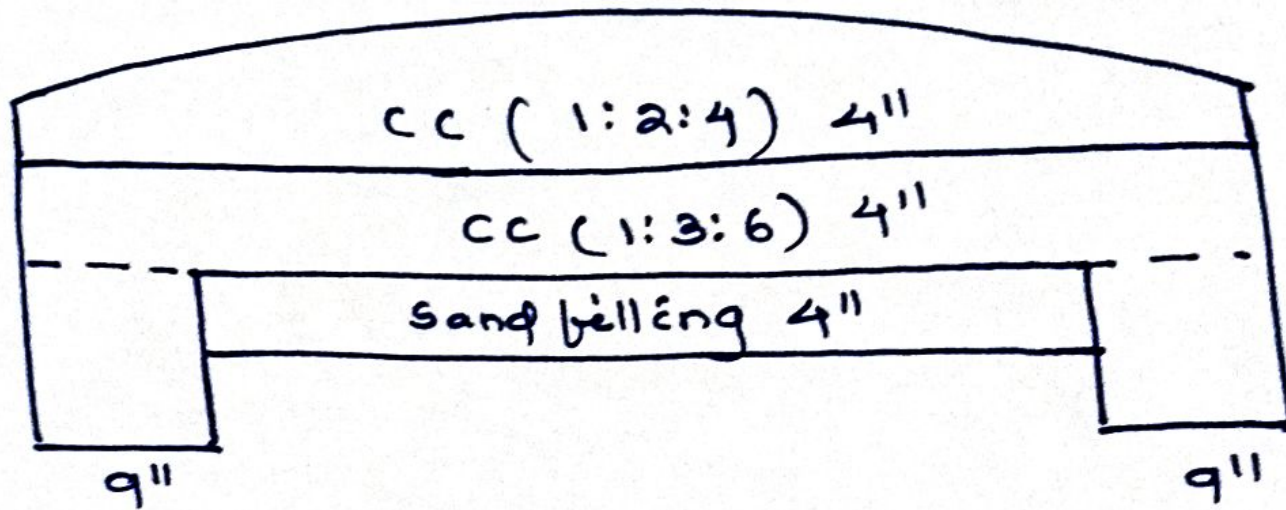 CC (1:2:4) 4"
CC (1:3:6) 4"
sand filling 4"
9" 9"